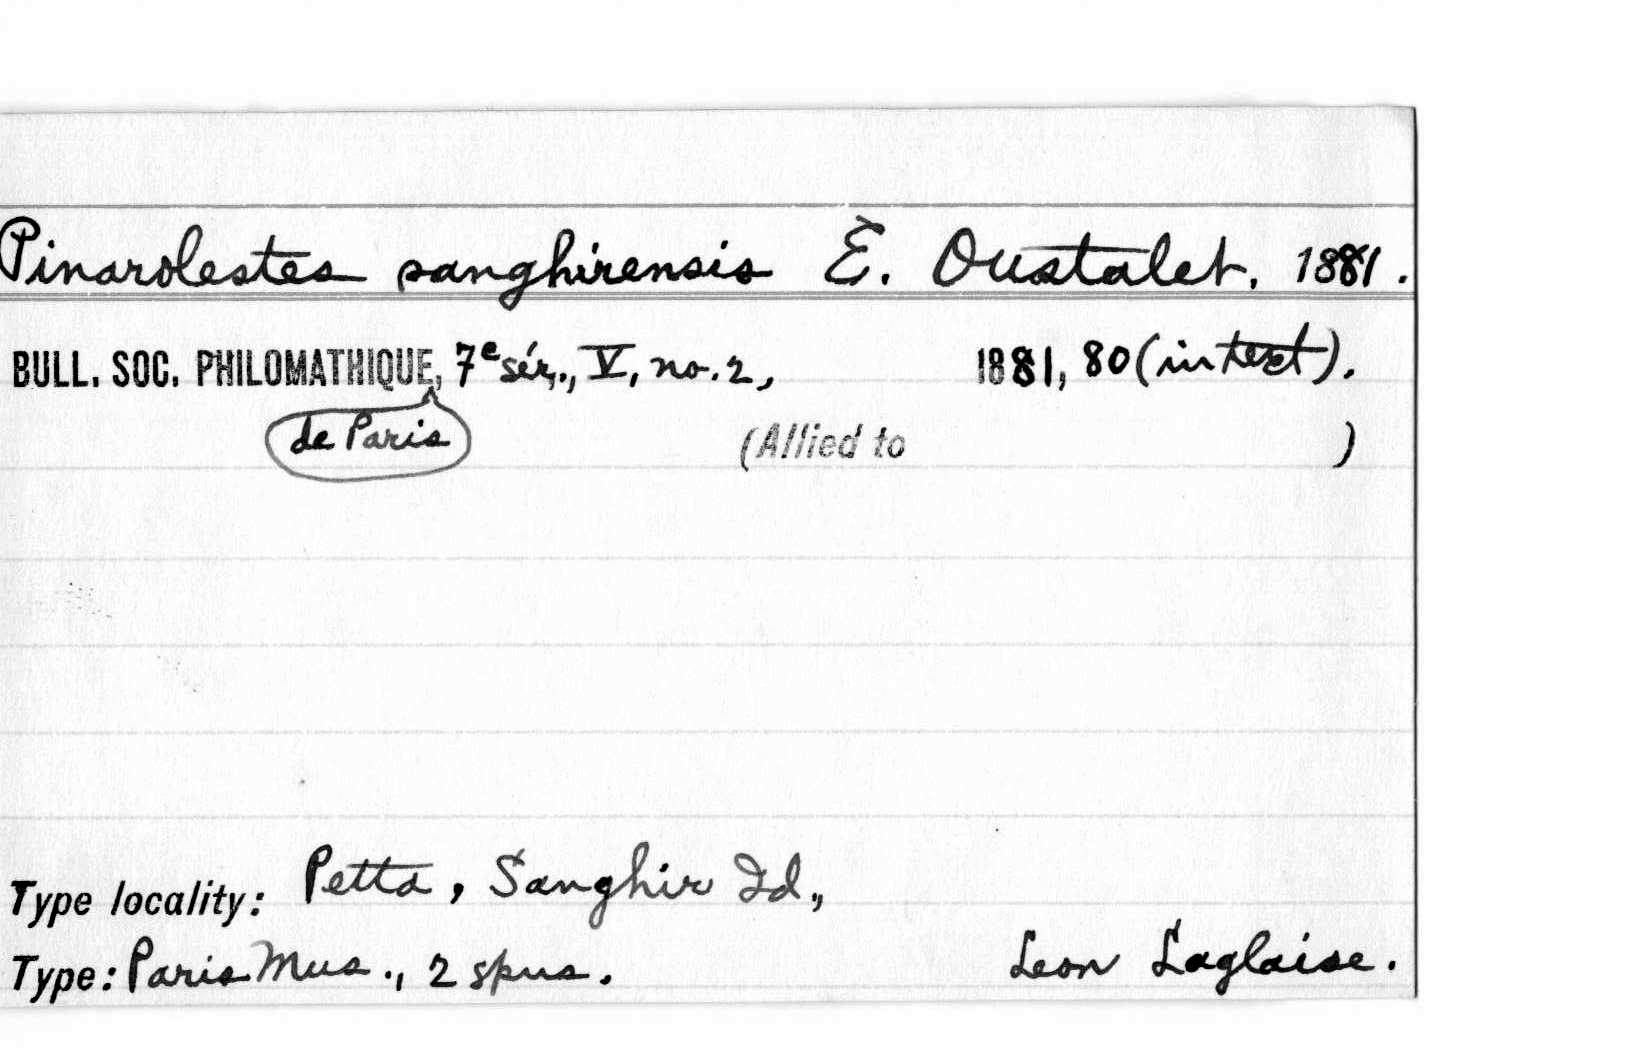 Pinarolestes sanghirensis É. Oustalet, 1881.
BULL. SOC. PHILOMATHIQUE, 7e sér., V, no. 2, 1881, 80 (in text).
de Paris (Allied to )
Type locality: Petta, Sanghir Id.,
Type: Paris Mus., 2 spms. Leon Laglaise.